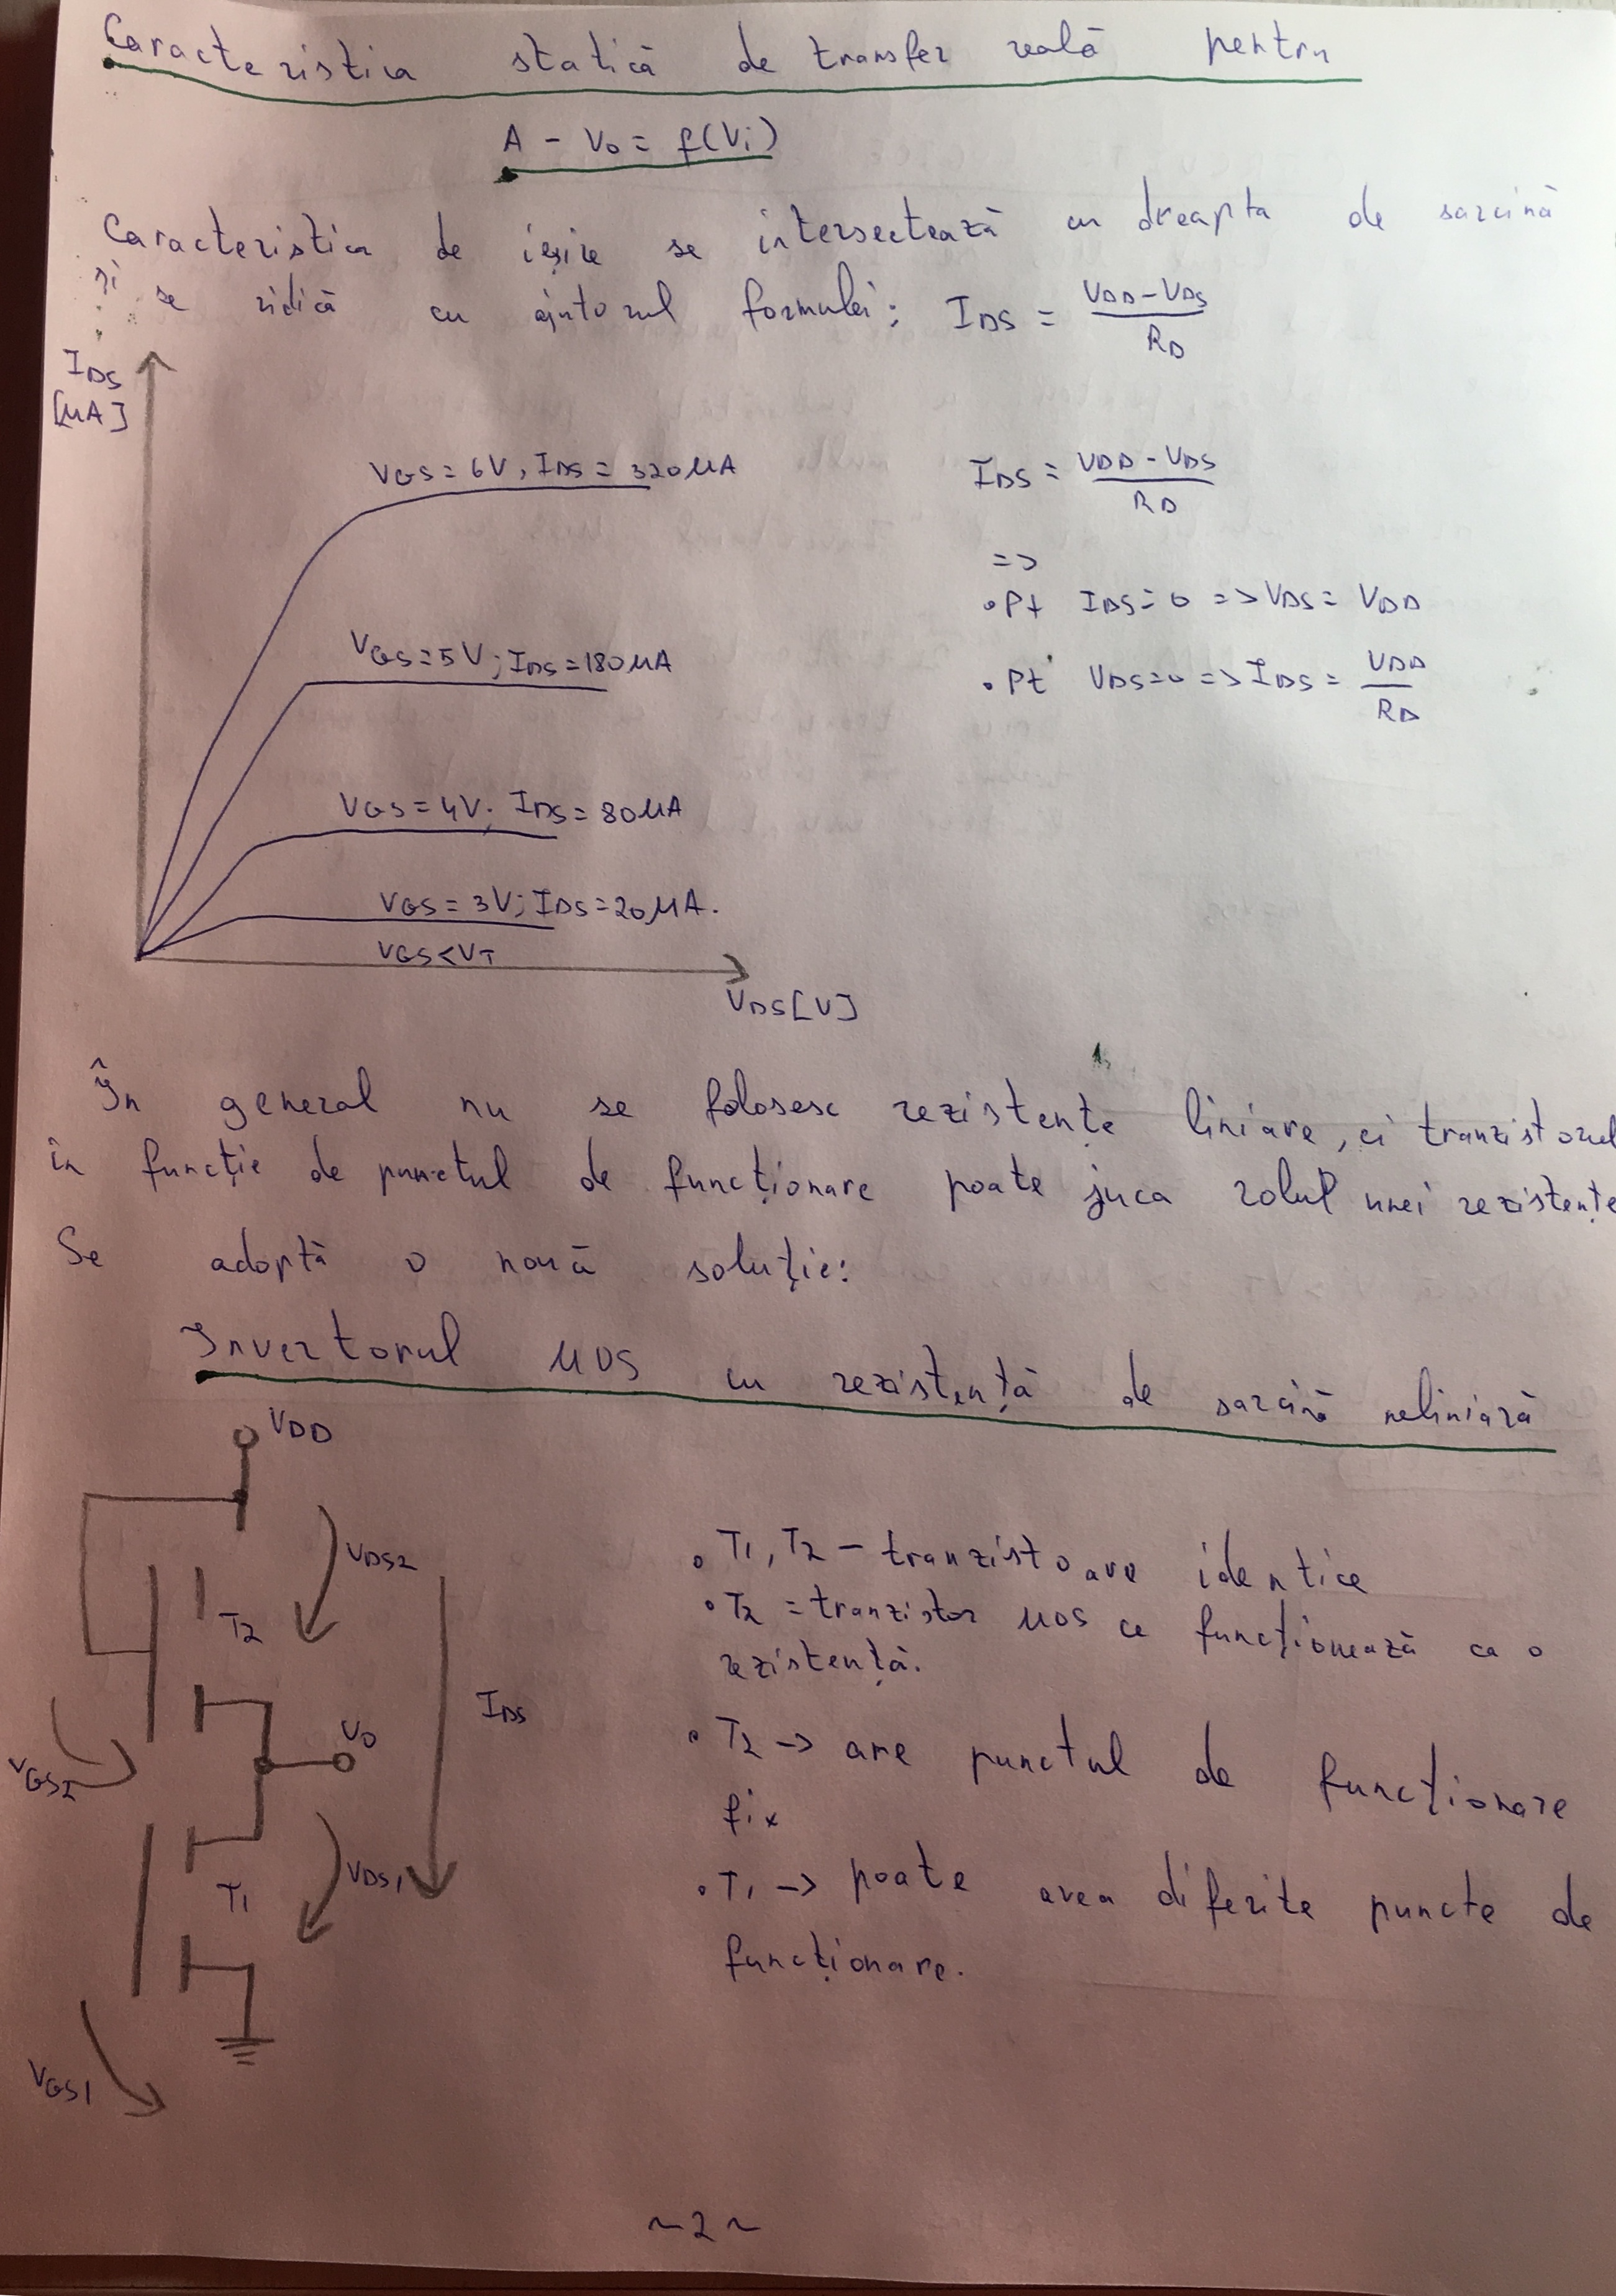 Caracteristica statică de transfer reală pentru
A - Vo = f(Vi)
Caracteristica de ieșire se intersectează cu dreapta de sarcină
și se ridică cu ajutorul formulei: IDS = (VDD - VDS) / RD
IDS
[μA]
VGS = 6V, IDS = 320μA
VGS = 5V; IDS = 180μA
VGS = 4V; IDS = 80μA
VGS = 3V; IDS = 20μA.
VGS < VT
VDS[V]
IDS = (VDD - VDS) / RD
=>
• Pt IDS = 0 => VDS = VDD
• Pt VDS = 0 => IDS = VDD / RD
În general nu se folosesc rezistențe liniare, ci tranzistorul
în funcție de punctul de funcționare poate juca rolul unei rezistențe
Se adoptă o nouă soluție:
Invertorul MOS cu rezistență de sarcină neliniară
VDD
VDS2
T2
IDS
Vo
VGS2
VDS1
T1
VGS1
• T1, T2 - tranzistoare identice
• T2 = tranzistor MOS ce funcționează ca o
rezistență.
• T2 -> are punctul de funcționare
fix
• T1 -> poate avea diferite puncte de
funcționare.
~2~